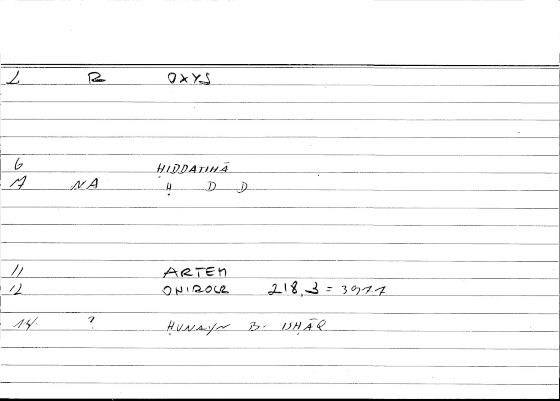 1 R OXYS
6 ḤIDDATIHĀ
7 NA Ḥ D D
11 ARTEM
12 ONIROCR 218,3 = 397,7
14 ? ḤUNAYN B. ISḤĀQ